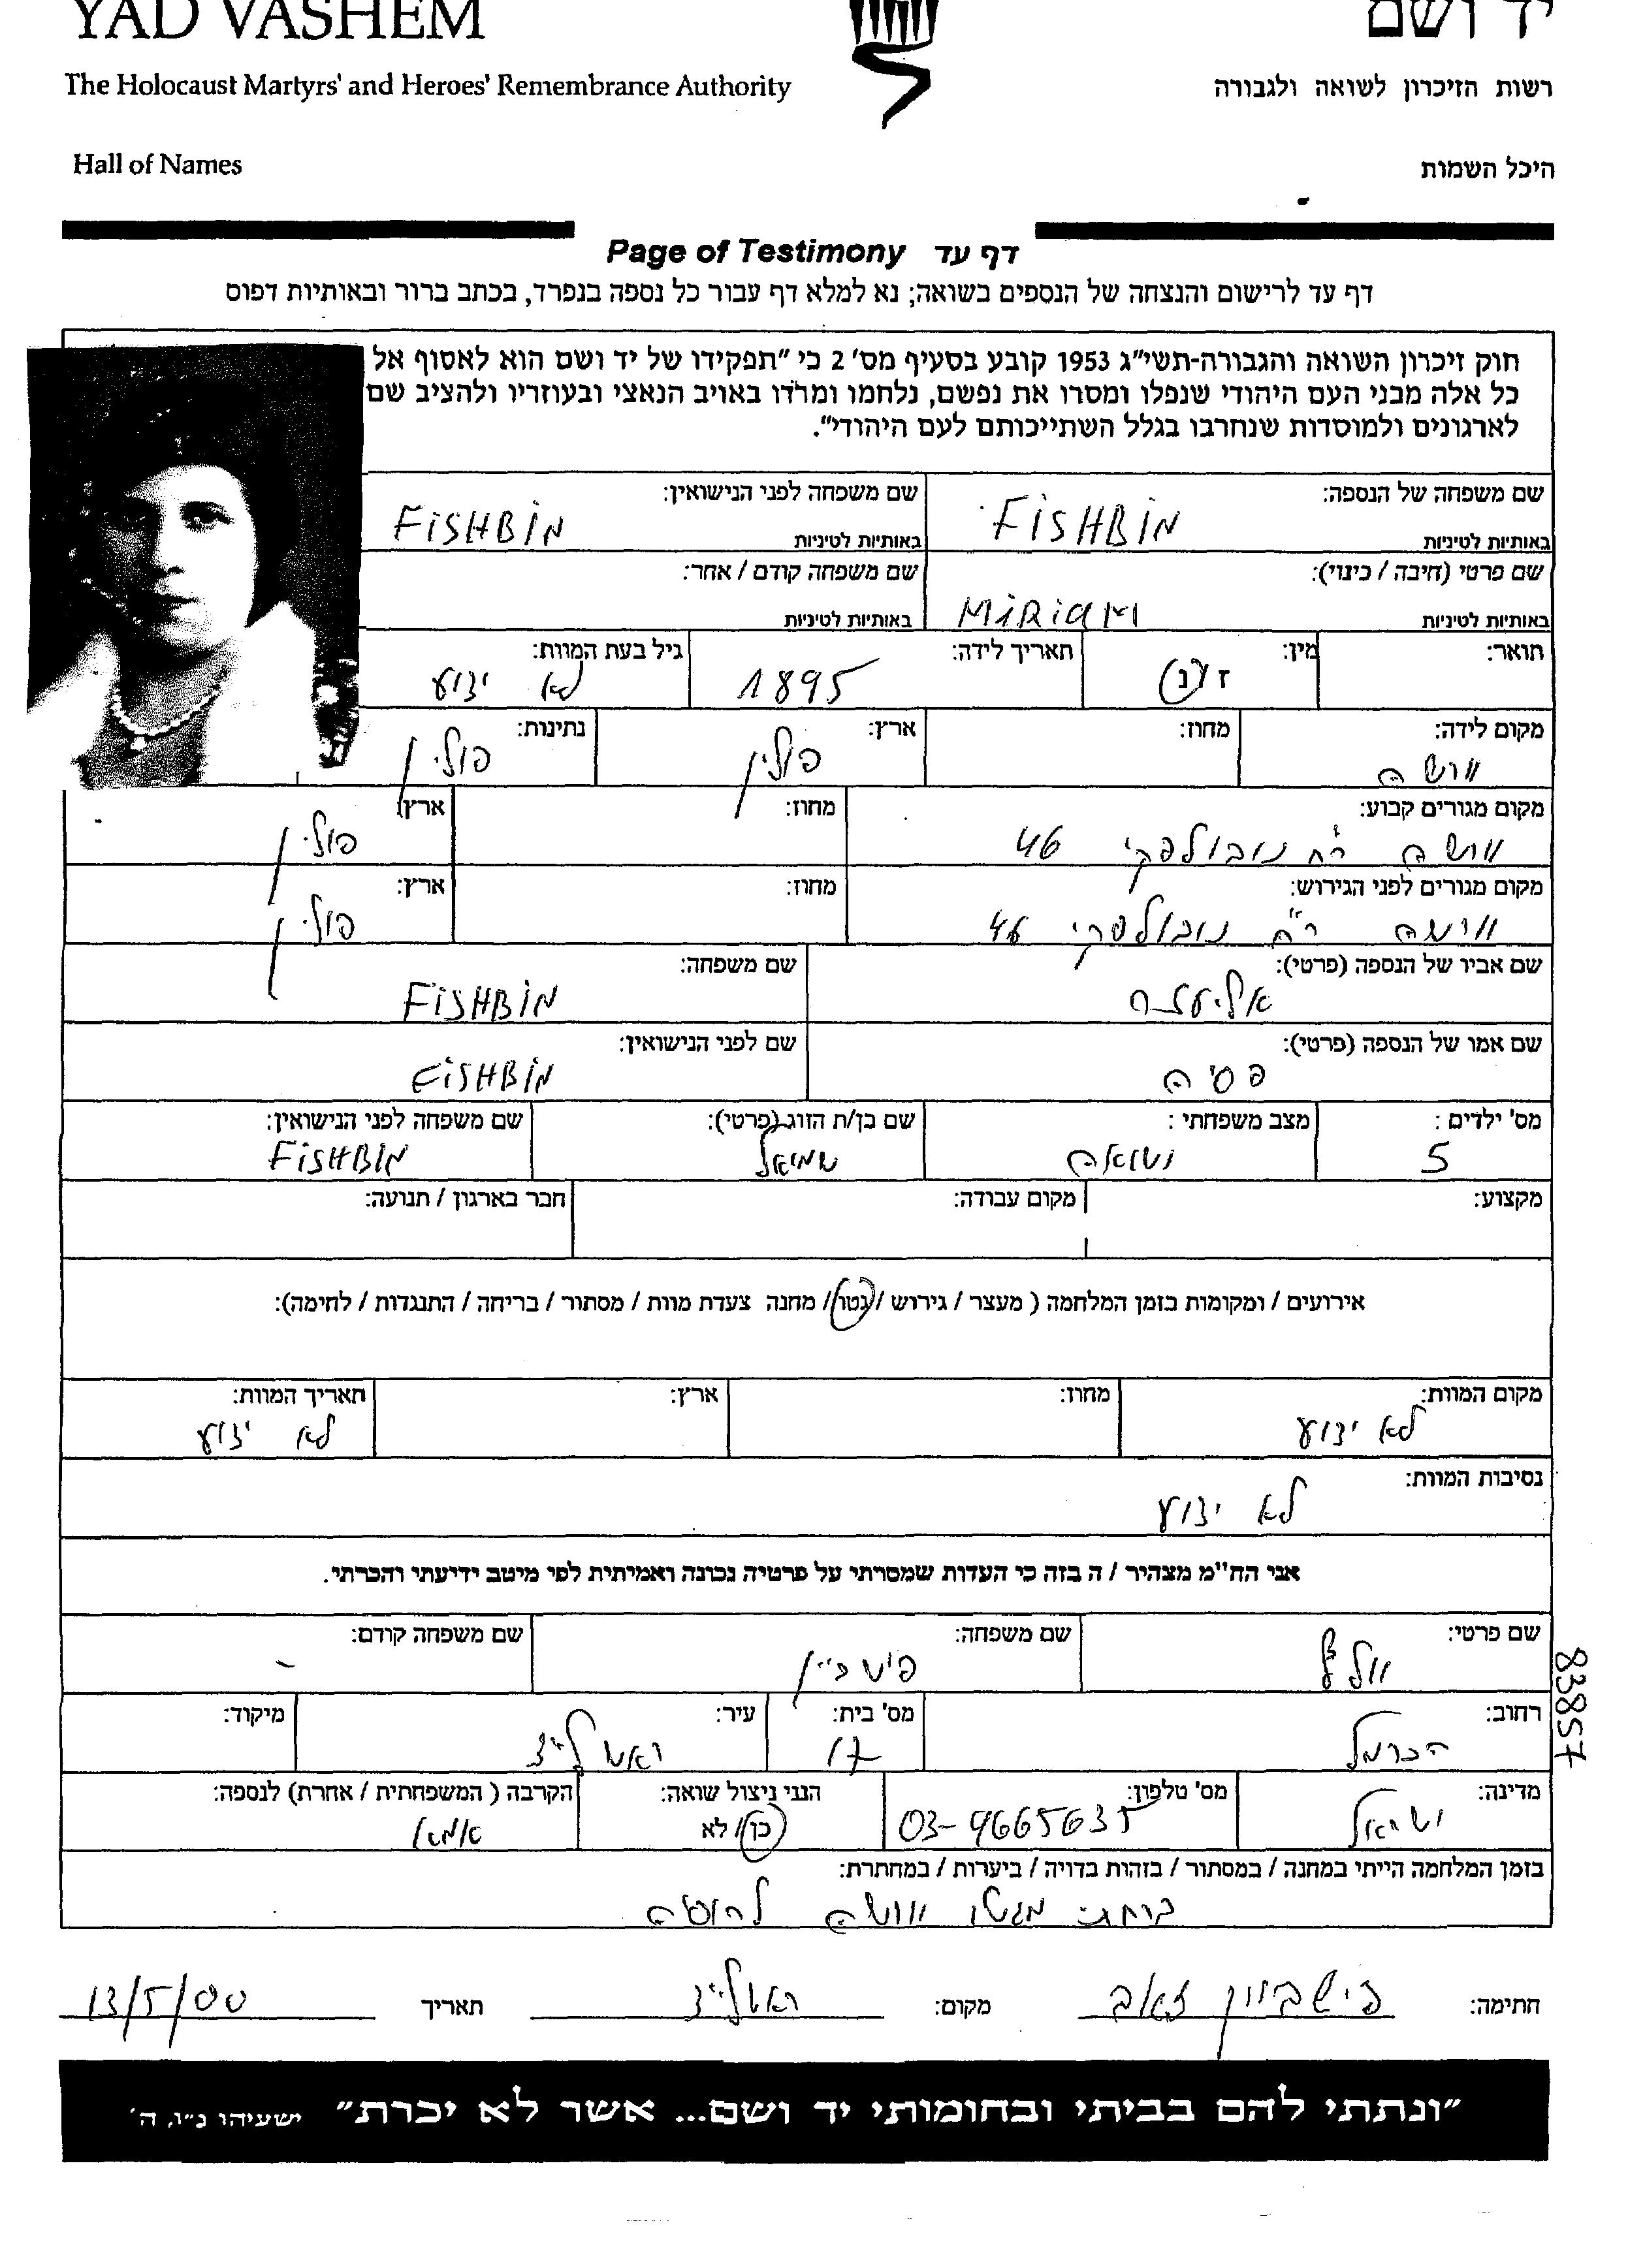 YAD VASHEM יד ושם
The Holocaust Martyrs' and Heroes' Remembrance Authority רשות הזיכרון לשואה ולגבורה
Hall of Names היכל השמות
Page of Testimony דף עד
דף עד לרישום והנצחה של הנספים בשואה; נא למלא דף עבור כל נספה בנפרד, בכתב ברור ובאותיות דפוס
חוק זיכרון השואה והגבורה-תשי"ג 1953 קובע בסעיף מס' 2 כי "תפקידו של יד ושם הוא לאסוף אל
כל אלה מבני העם היהודי שנפלו ומסרו את נפשם, נלחמו ומרדו באויב הנאצי ובעוזריו ולהציב שם
לארגונים ולמוסדות שנחרבו בגלל השתייכותם לעם היהודי".
שם משפחה של הנספה: שם משפחה לפני הנישואין:
FISHBIN FISHBIN
באותיות לטיניות באותיות לטיניות
שם פרטי (חיבה / כינוי): שם משפחה קודם / אחר:
MIRIAM
באותיות לטיניות באותיות לטיניות
תואר: מין: תאריך לידה: גיל בעת המוות:
ז / נ 1895 לא ידוע
מקום לידה: מחוז: ארץ: נתינות:
ורשה פולין פולין
מקום מגורים קבוע: מחוז: ארץ:
ורשה רח' נובולפקי 46 פולין
מקום מגורים לפני הגירוש: מחוז: ארץ:
ורשה רח' נובולפקי 46 פולין
שם אביו של הנספה (פרטי): שם משפחה:
אליעזר FISHBIN
שם אמו של הנספה (פרטי): שם לפני הנישואין:
פסיה FISHBIN
מס' ילדים: מצב משפחתי: שם בן/ת הזוג (פרטי): שם משפחה לפני הנישואין:
5 נשואה שמואל FISHBIN
מקצוע: מקום עבודה: חבר בארגון / תנועה:
אירועים / ומקומות בזמן המלחמה ( מעצר / גירוש / גטו / מחנה צעדת מוות / מסתור / בריחה / התנגדות / לחימה):
מקום המוות: מחוז: ארץ: תאריך המוות:
לא ידוע לא ידוע
נסיבות המוות:
לא ידוע
אני הח"מ מצהיר / ה בזה כי העדות שמסרתי על פרטיה נכונה ואמיתית לפי מיטב ידיעתי והכרתי.
שם פרטי: שם משפחה: שם משפחה קודם:
פישביין -
83857
רחוב: מס' בית: עיר: מיקוד:
הכרמל 17 ראשל"צ
מדינה: מס' טלפון: הנני ניצול שואה: הקרבה ( המשפחתית / אחרת) לנספה:
ישראל 03-9665635 כן / לא אמא
בזמן המלחמה הייתי במחנה / במסתור / בזהות בדויה / ביערות / במחתרת:
ברחתי מגטו ורשה לרוסיה
חתימה: פישביין זאב מקום: ראשל"צ תאריך 13/5/00
"ונתתי להם בביתי ובחומותי יד ושם... אשר לא יכרת" ישעיהו נ"ו, ה'